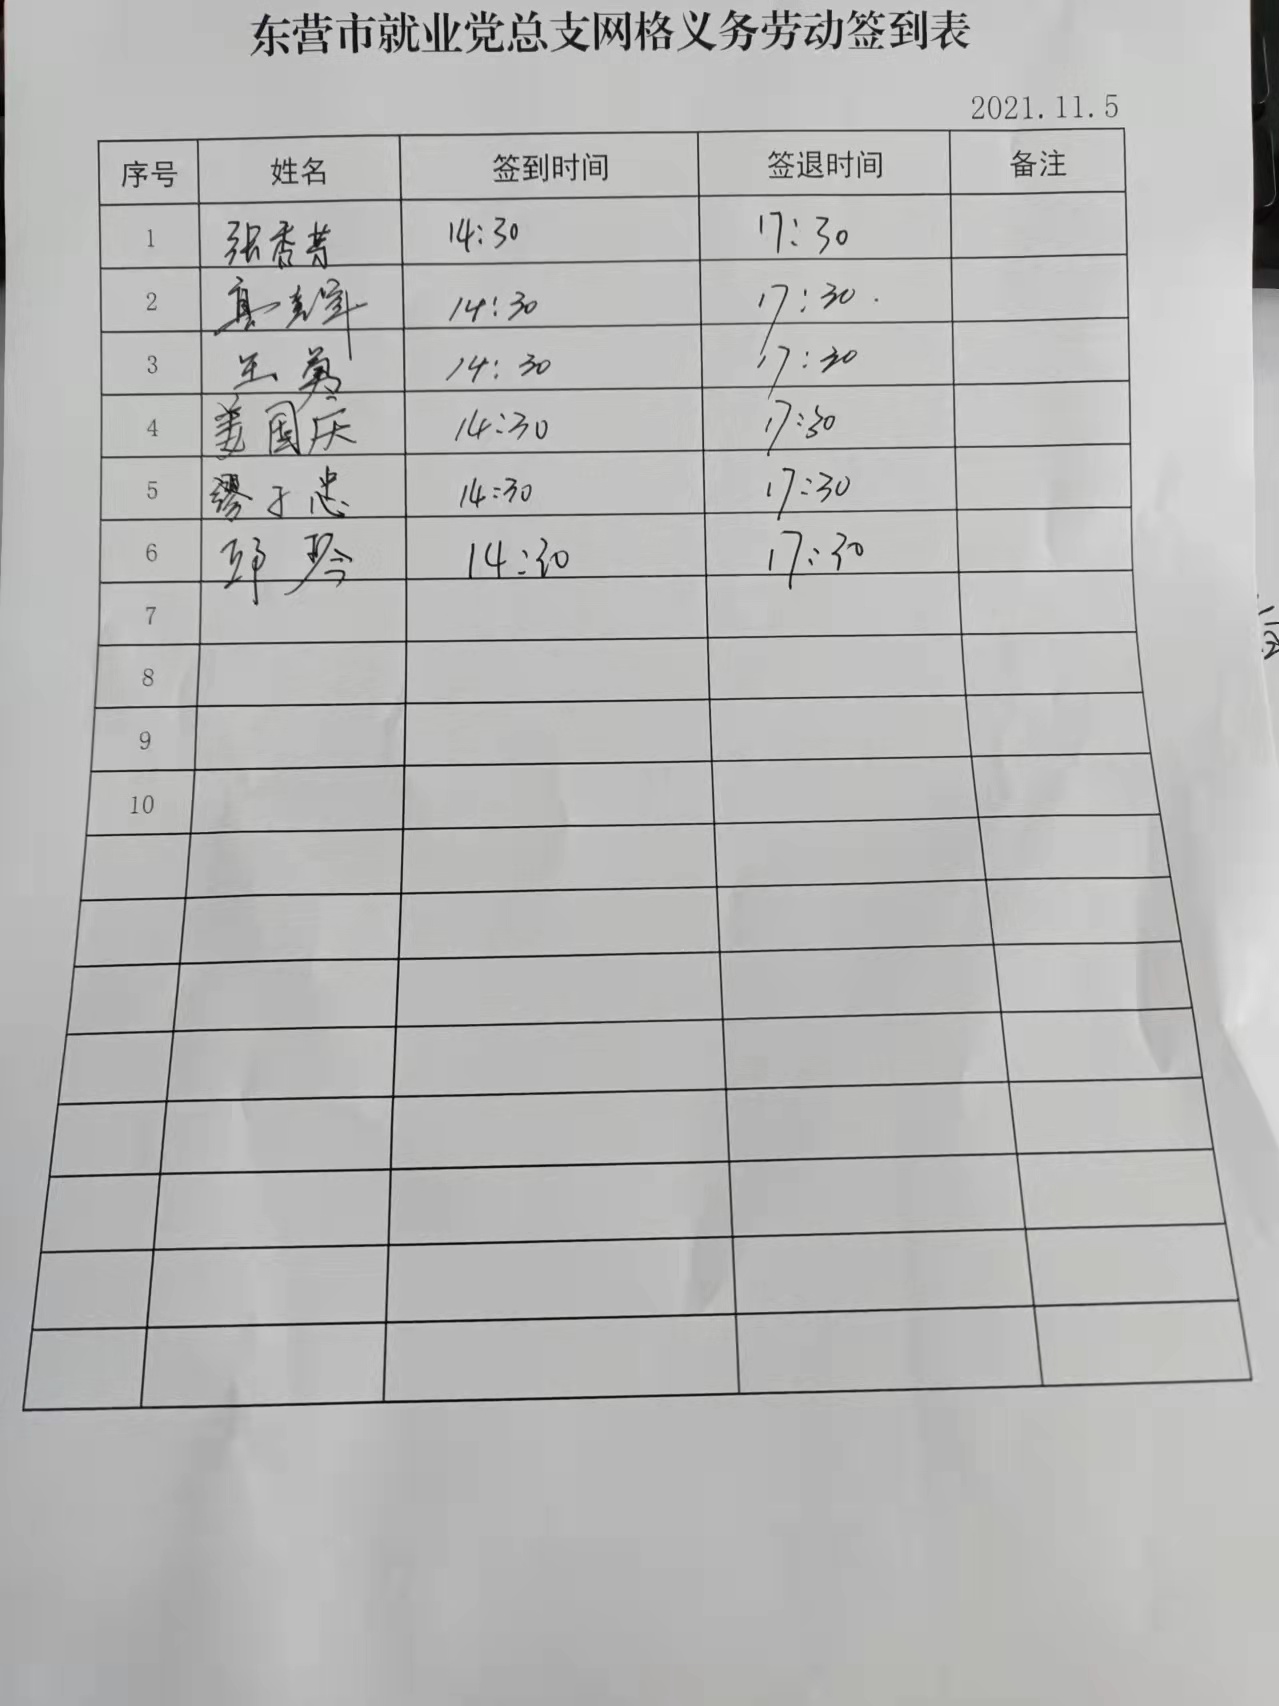 东营市就业党总支网格义务劳动签到表
2021.11.5
序号 姓名 签到时间 签退时间 备注
1 张香芳 14:30 17:30
2 14:30 17:30
3 王勇 14:30 17:30
4 姜国庆 14:30 17:30
5 缪于忠 14:30 17:30
6 邱琴 14:30 17:30
7
8
9
10